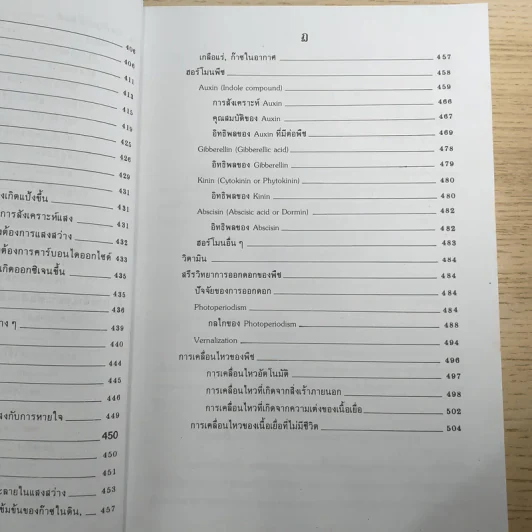 406
406
411
413
415
419
425
426
429
431
งเกิดแป้งขึ้น 431
การสังเคราะห์แสง 431
งต้องการแสงสว่าง 432
ต้องการคาร์บอนไดออกไซด์ 433
เกิดออกซิเจนขึ้น 435
435
436
าง ๆ 439
440
444
445
446
งกับการหายใจ 449
450
450
451
ะลายในแสงสว่าง 453
ข้มข้นของก๊าซในดิน, 457
เกลือแร่, ก๊าซในอากาศ 457
ฮอร์โมนพืช 458
Auxin (Indole compound) 459
การสังเคราะห์ Auxin 466
คุณสมบัติของ Auxin 467
อิทธิพลของ Auxin ที่มีต่อพืช 469
Gibberellin (Gibberellic acid) 478
อิทธิพลของ Gibberellin 479
Kinin (Cytokinin or Phytokinin) 480
อิทธิพลของ Kinin 480
Abscisin (Abscisic acid or Dormin) 482
อิทธิพลของ Abscisin 482
ฮอร์โมนอื่น ๆ 483
วิตามิน 484
สรีรวิทยาการออกดอกของพืช 484
ปัจจัยของการออกดอก 484
Photoperiodism 484
กลไกของ Photoperiodism 488
Vernalization 494
การเคลื่อนไหวของพืช 496
การเคลื่อนไหวอัตโนมัติ 497
การเคลื่อนไหวที่เกิดจากสิ่งเร้าภายนอก 498
การเคลื่อนไหวที่เกิดจากความเต่งของเนื้อเยื่อ 502
การเคลื่อนไหวของเนื้อเยื่อที่ไม่มีชีวิต 504